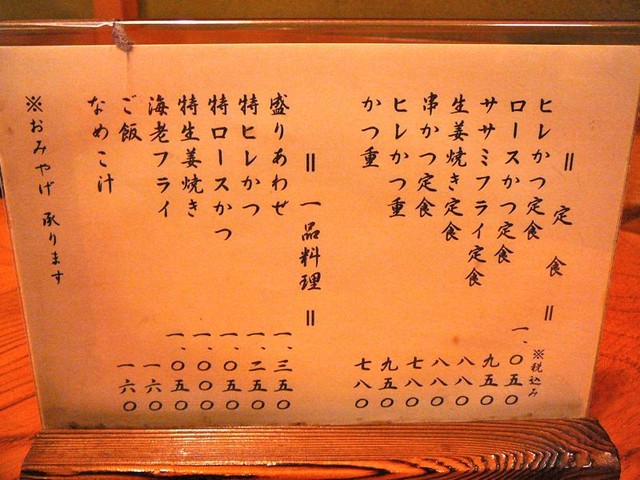 ＝ 定 食 ＝
※税込み
ヒレかつ定食 一、〇五〇
ロースかつ定食 九五〇
ササミフライ定食 八八〇
生姜焼き定食 八八〇
串かつ定食 七八〇
ヒレかつ重 九五〇
かつ重 七八〇
＝ 一品料理 ＝
盛りあわせ 一、三五〇
特ヒレかつ 一、二五〇
特ロースかつ 一、〇五〇
特生姜焼き 一、〇〇〇
海老フライ 一、〇五〇
ご飯 一六〇
なめこ汁 一六〇
※おみやげ 承ります